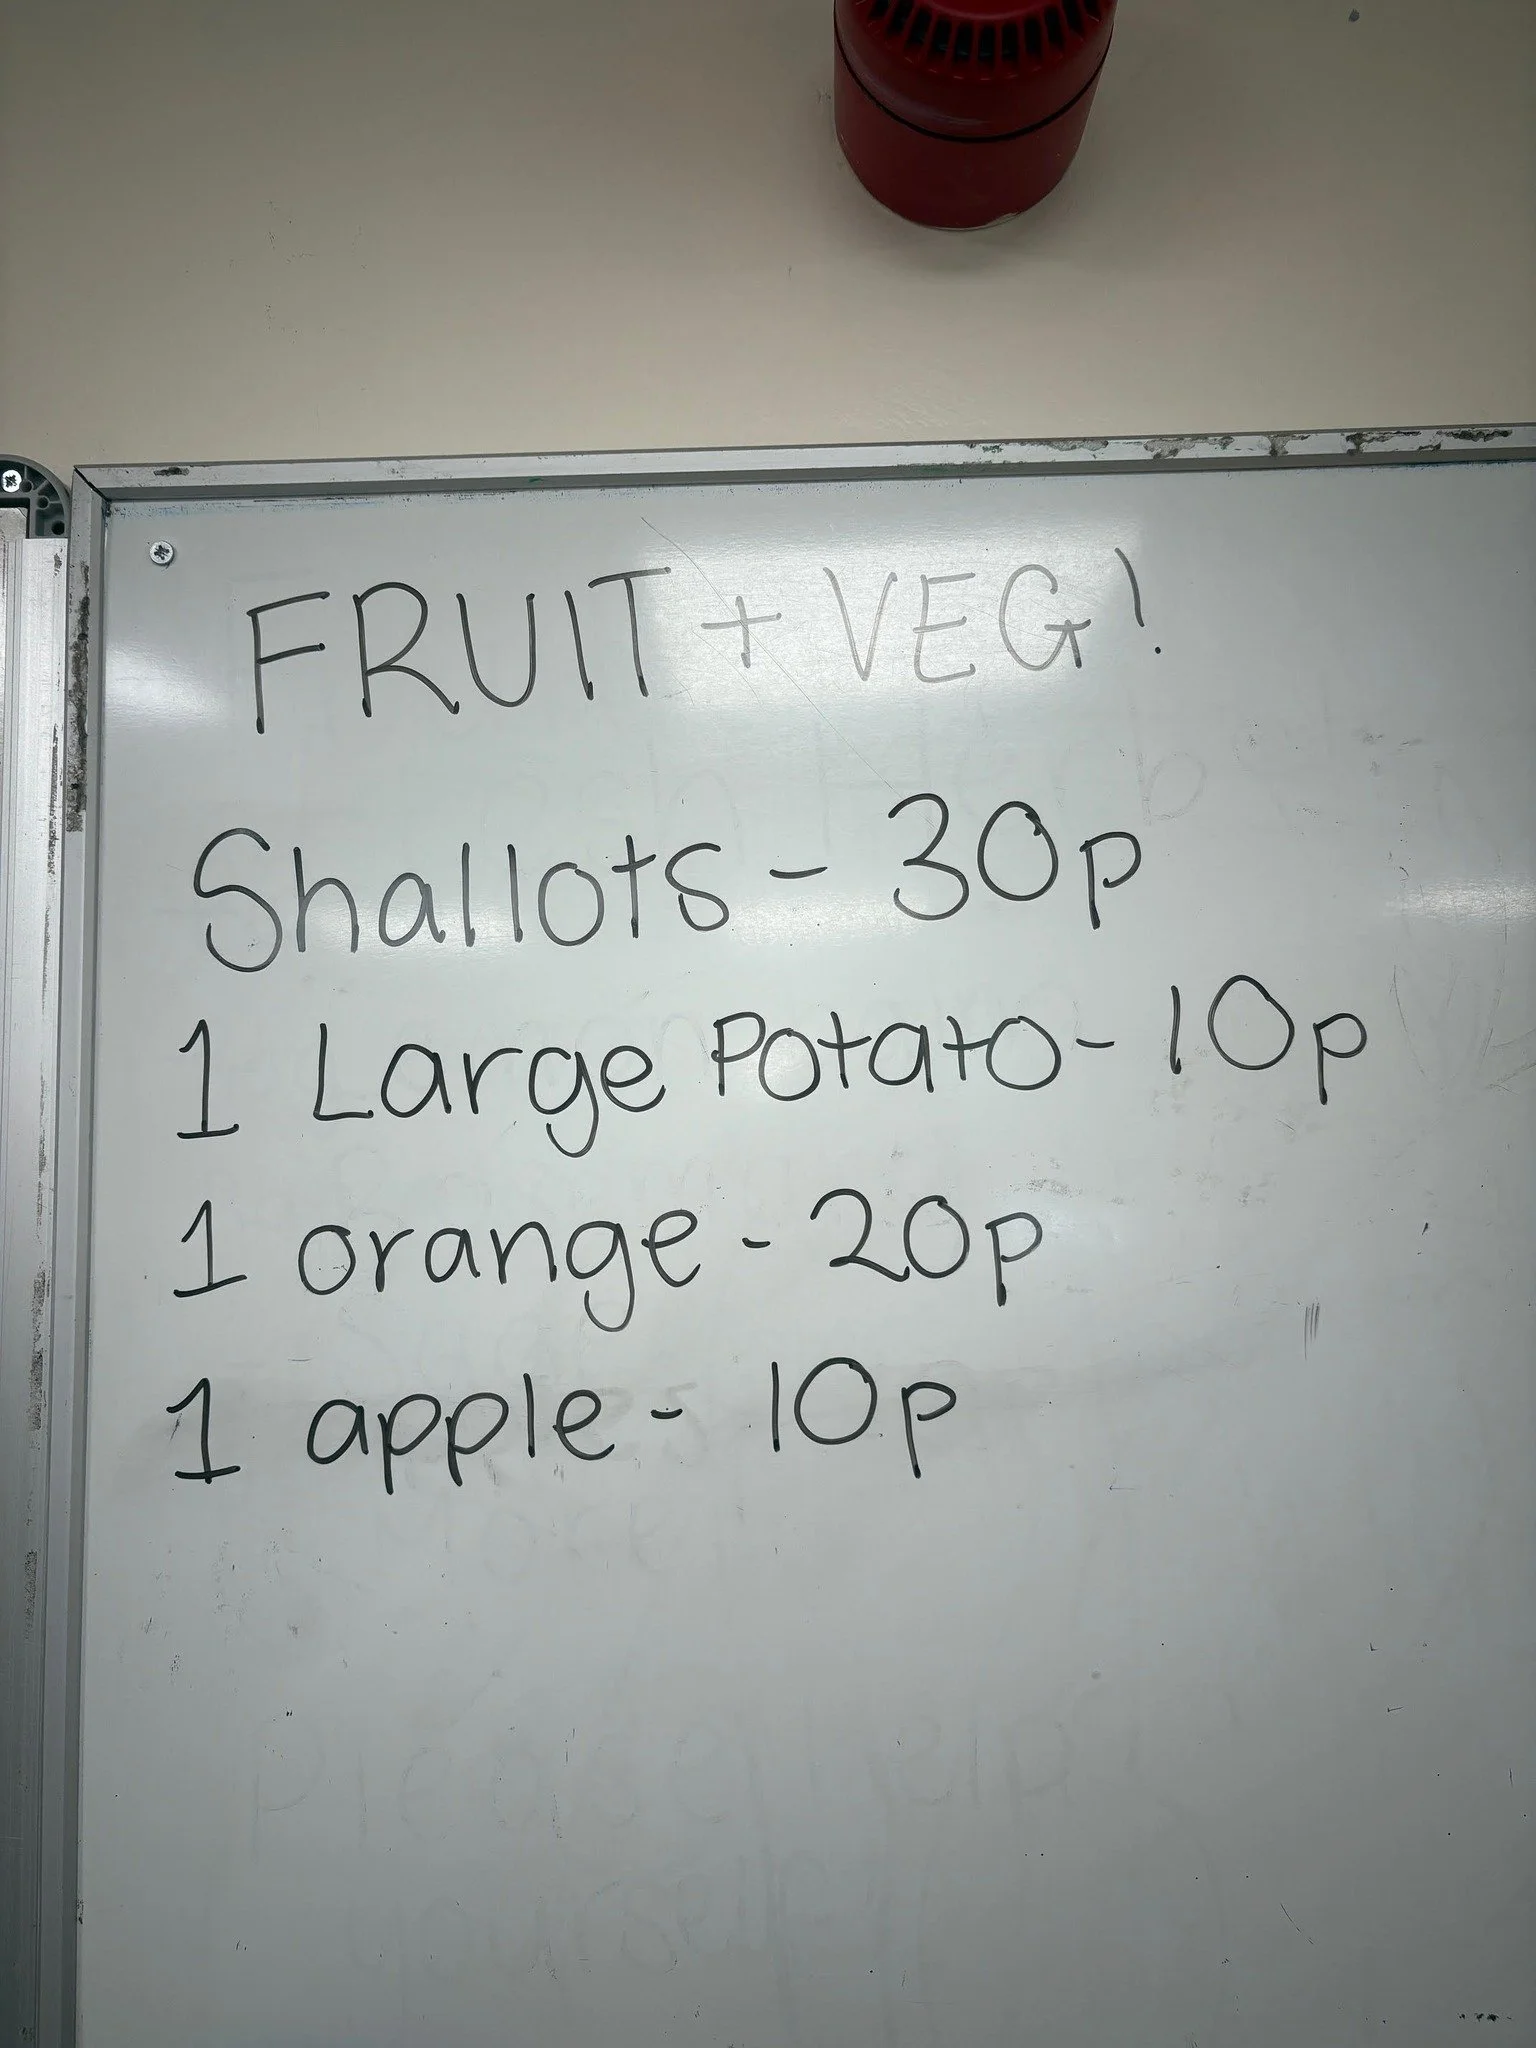 FRUIT + VEG!
Shallots - 30p
1 Large Potato - 10p
1 orange - 20p
1 apple - 10p
Please help
yourself